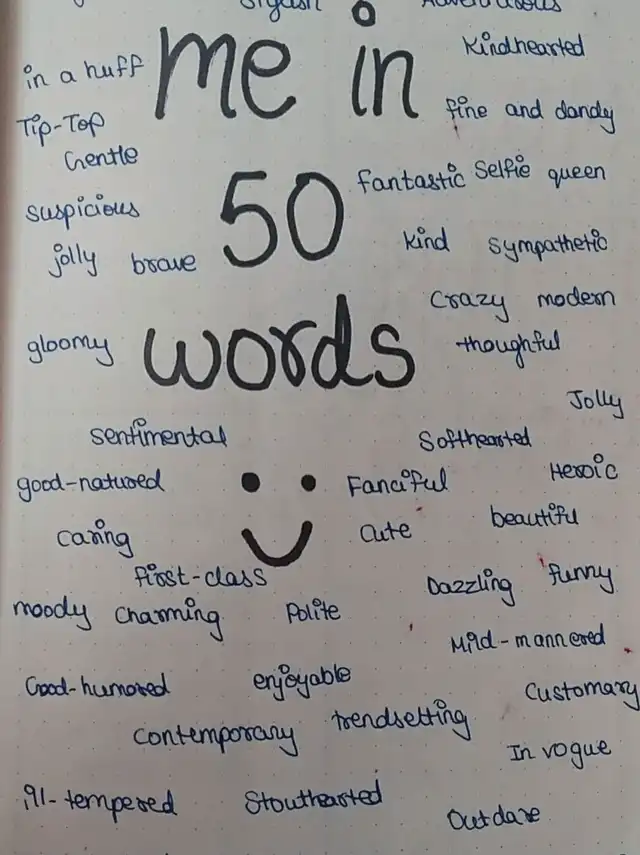 me in
in a huff
Kindhearted
Tip-Top
fine and dandy
Gentle
50
fantastic Selfie queen
suspicious
kind sympathetic
jolly brave
crazy modern
words
gloomy
thoughful
Jolly
sentimental
Softhearted
good-natured
Fanciful
Heroic
caring
cute
beautiful
first-class
Dazzling funny
moody charming Polite
Mild-mannered
Good-humored
enjoyable
Customary
contemporary trendsetting
In vogue
ill-tempered
Stouthearted
Outdare